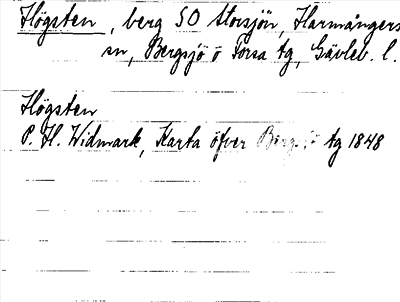 Högsten, berg SO Storsjön, Harmångers
sn, Bergsjö o Forsa tg, Gävleb. l.
Högsten
P. H. Widmark, Karta öfver Bergsjö tg 1848